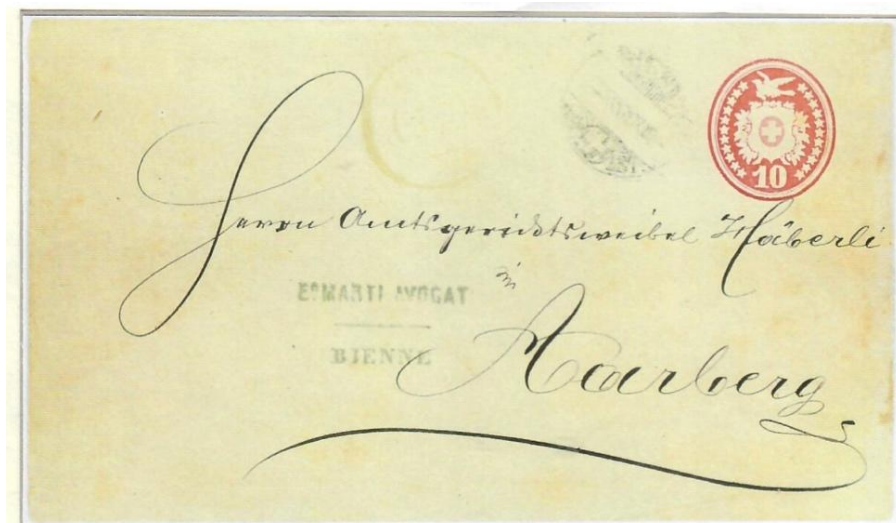 10
Herrn Amtsgerichtsweibel Häberli
in
Aarberg
ED MARTI AVOCAT
BIENNE